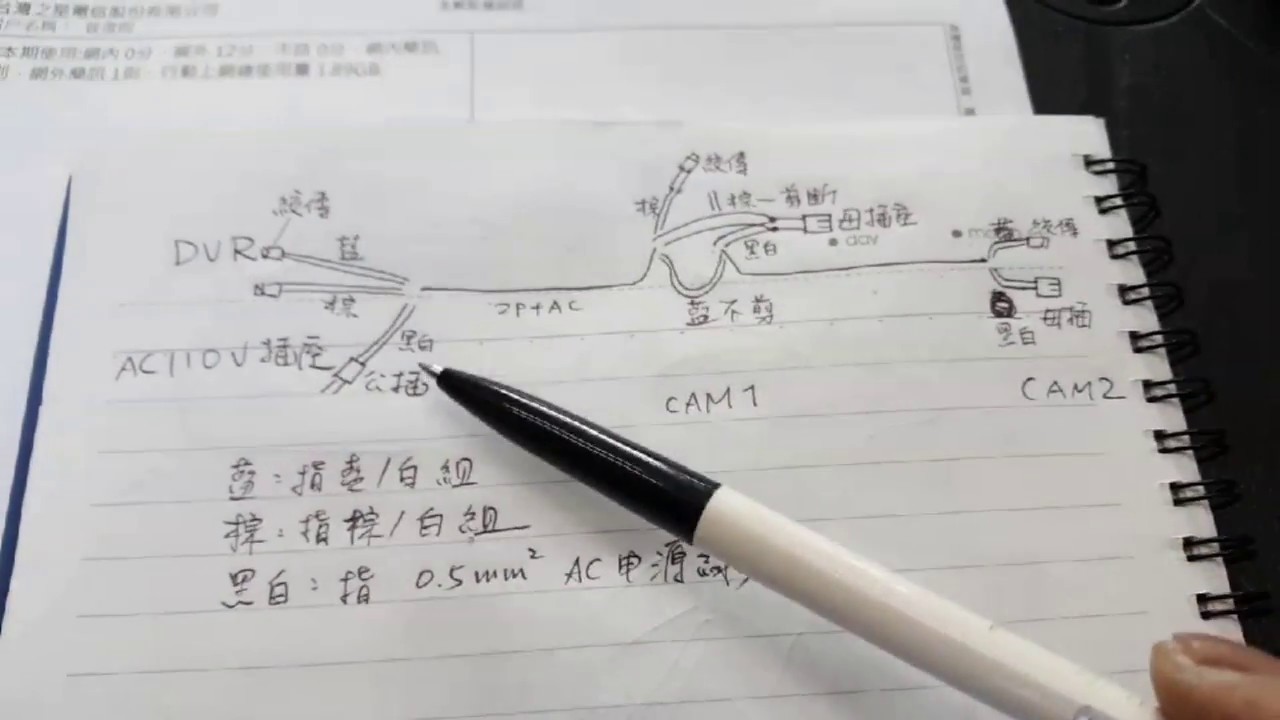 本期使用:網內0分、網外12分、市話0分、網內簡訊
網外簡訊1則、行動上網總使用量1.89GB
絞傳
絞傳
棕
棕-剪斷
母插座
DVR
藍
黑白
day
藍
絞傳
棕
2P+AC
藍不剪
黑白
母插
AC110V插座
黑白
公插
CAM1
CAM2
藍:指藍/白組
棕:指棕/白組
黑白:指 0.5mm² AC电源